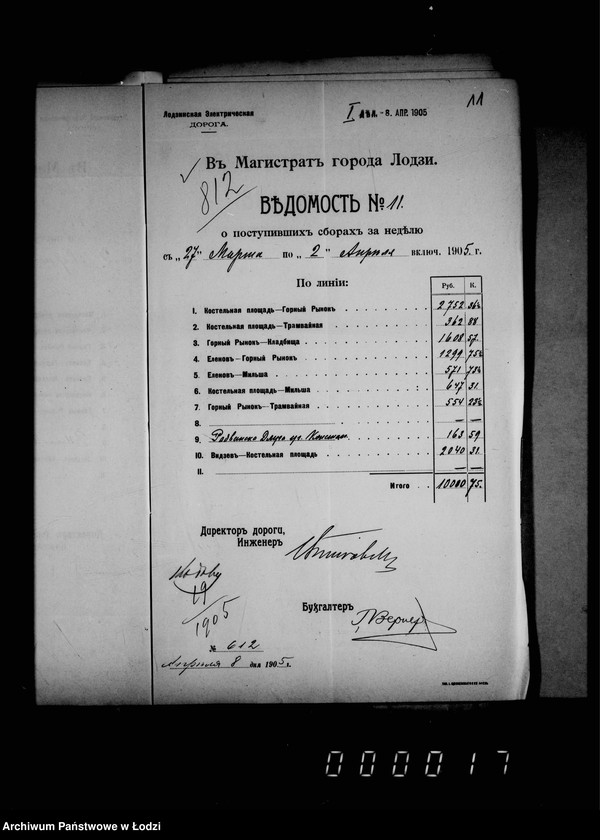 11
Лодзинская Электрическая
ДОРОГА.
I ДѢЛ. - 8. АПР. 1905
Въ Магистратъ города Лодзи.
812
ВѢДОМОСТЬ № 11.
о поступившихъ сборахъ за недѣлю
съ „27" Марта по „2" Апрѣля включ. 1905. г.
По линіи:
Руб. К.
1. Костельная площадь—Горный Рынокъ 2752 36½
2. Костельная площадь—Трамвайная 362 88
3. Горный Рынокъ—Кладбища 1608 57.
4. Еленовъ—Горный Рынокъ 1299 75½
5. Еленовъ—Мильша 571 73½
6. Костельная площадь—Мильша 647 31.
7. Горный Рынокъ—Трамвайная 554 23½
8. — —
9. 163 59
10. Видзевъ—Костельная площадь 2040 31.
11. — —
Итого 10000 75.
Директоръ дороги,
Инженеръ
19
1905
Бухгалтеръ
№ 612
Апрѣля 8 дня 1905 г.
000017
Archiwum Państwowe w Łodzi